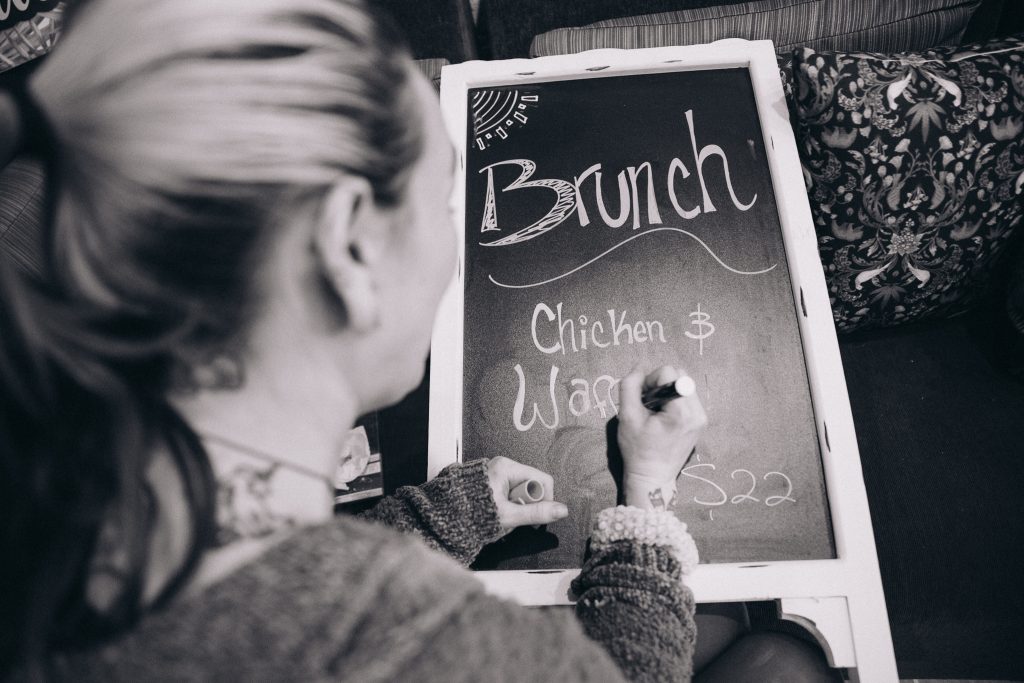 Brunch
Chicken &
Waff
$22